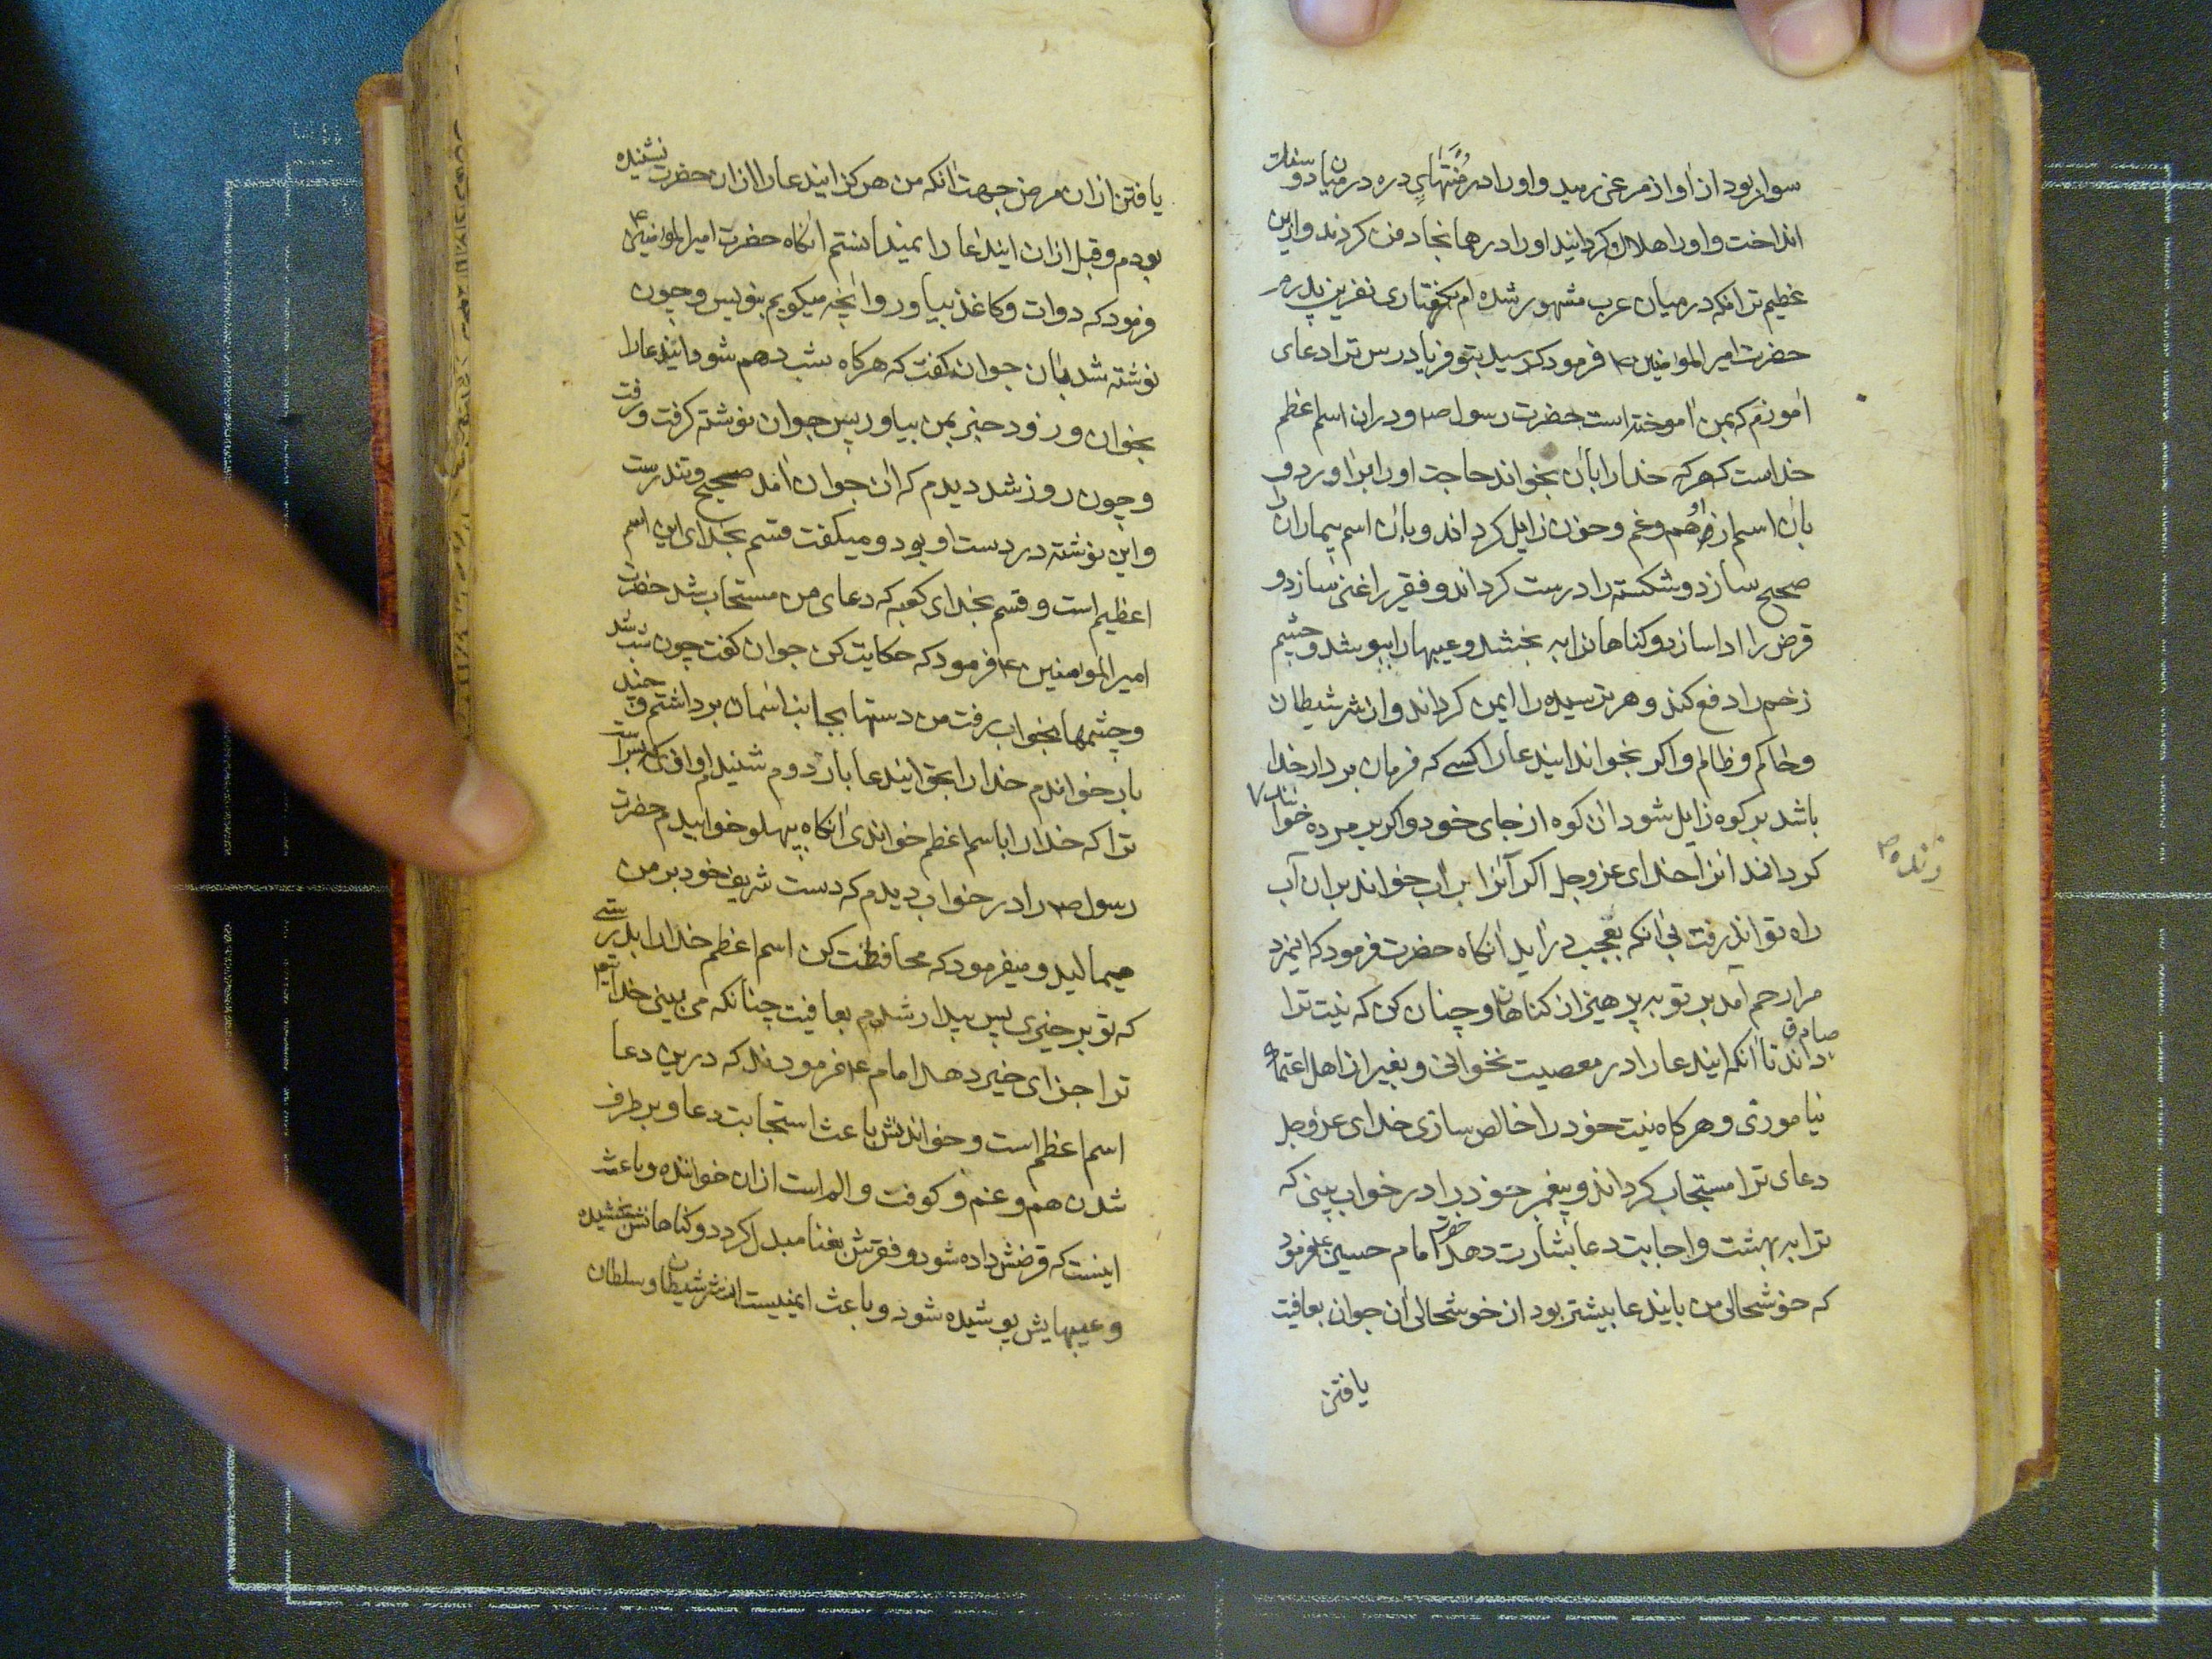 سوار بود از آواز مرغی رمید و او را در مُنتَهایِ دره در میان دو سنک
انداخت و او را هلاک کردانید او را در همانجا دفن کردند و ازین
عظیم تر آنکه در میان عرب مشهور شده ام بکرفتاری نفرین پدر
حضرت امیر المؤمنین ع فرمود که رسید بتو فریادرس ترا دعای
آموزم که بمن آموخته است حضرت رسول ص و در ان اسم اعظم
خداست که هر که خدا را بآن بخواند حاجت او را برآورد و
بآن اسم از او هم و غم و حزن زایل کرداند و بآن اسم بیماران را
صحیح سازد و شکسته را درست کرداند و فقیر را غنی سازد و
قرض را ادا سازد و کناهانرا به بخشد و عیبها را بپوشد و چشم
زخم را دفع کند و هر ترسیده را ایمن کرداند و از شر شیطان
و حاکم و ظالم و اکر بخواند ایندعا را کسی که فرمان بردار خدا
باشد بر کوه زایل شود ان کوه از جای خود و اکر بر مرده خواند
زنده ص
کرداند انرا خدای عزوجل اکر آنرا بر اب خواند بر ان آب
راه تواند رفت بی آنکه تعجب درآید آنکاه حضرت فرمود که ایمرد
مرا رحم آمد بر تو به پرهیز از کناهان و چنان کن که نیت ترا
صادق داند تا آنکه ایندعا را در معصیت نخوانی و بغیر از اهل اعتماد
نیاموزی و هر کاه نیت خود را خالص سازی خدای عزوجل
دعای ترا مستجاب کرداند و پیغمبر خود را در خواب بینی که
ترا به بهشت و اجابت دعا بشارت دهد حضرت امام حسین ع فرمود
که خوشحالی من بایندعا بیشتر بود از خوشحالی ان جوان بعافیت
یافتن
یافتن ازان مرض جهت آنکه من هرکز ایندعا را ازان حضرت نشنیده
بودم و قبل ازان ایندعا را نمیدانستم آنکاه حضرت امیر المؤمنین ع
فرمود که دوات و کاغذ بیاور و آنچه میکویم بنویس و چون
نوشته شد بآن جوان کفت که هرکاه شب دهم شود ایندعا را
بخوان و روز خبر بمن بیاور پس جوان نوشته کرفت و رفت
و چون روز شد دیدم که آن جوان آمد صحیح و تندرست
و این نوشته در دست او بود و میکفت قسم بخدای این اسم
اعظیم است و قسم بخدای کعبه که دعای من مستجاب شد حضرت
امیر المومنین ع فرمود که حکایت کن جوان کفت چون شب شد
و چشمها بخواب رفت من دستها بجانب اسمان برداشتم و چند
بار خواندم خدا را بحق ایندعا بار دوم شنیدم اوازی که بس است
ترا که خدا را باسم اعظم خواندی آنکاه بپهلو خوابیدم حضرت
رسول ص را در خواب دیدم که دست شریف خود بر من
میمالید و میفرمود که محافظت کن اسم اعظم خدا را بدرستی
که تو بر خیری پس بیدار شدم بعافیت چنانکه می بینی خدایتع
ترا جزای خیر دهد امام ع فرمودند که درین دعا
اسم اعظم است و خواندنش باعث استجابت دعا و بر طرف
شدن هم و غم و کوفت و الم است ازان خواننده و باعث
اینست که قرضش داده شود و فقرش بغنا مبدل کردد و کناهانش بخشیده
و عیبهایش پوشیده شود و باعث ایمنیست از شر شیطان و سلطان